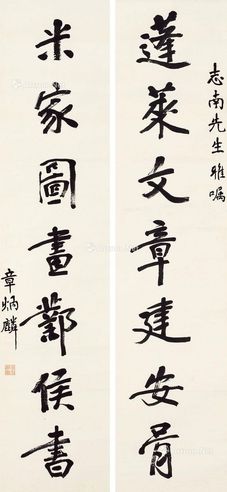 志南先生雅嘱
蓬萊文章建安骨
米家圖畫酇侯書
章炳麟